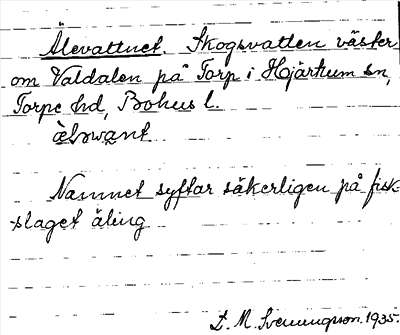 Ålevattnet. Skogsvatten väster
om Valdalen på Torp i Hjärtum sn,
Torpe hd, Bohus l.
Namnet syftar säkerligen på fisk-
slaget åling
D. M. Svenungson. 1935.